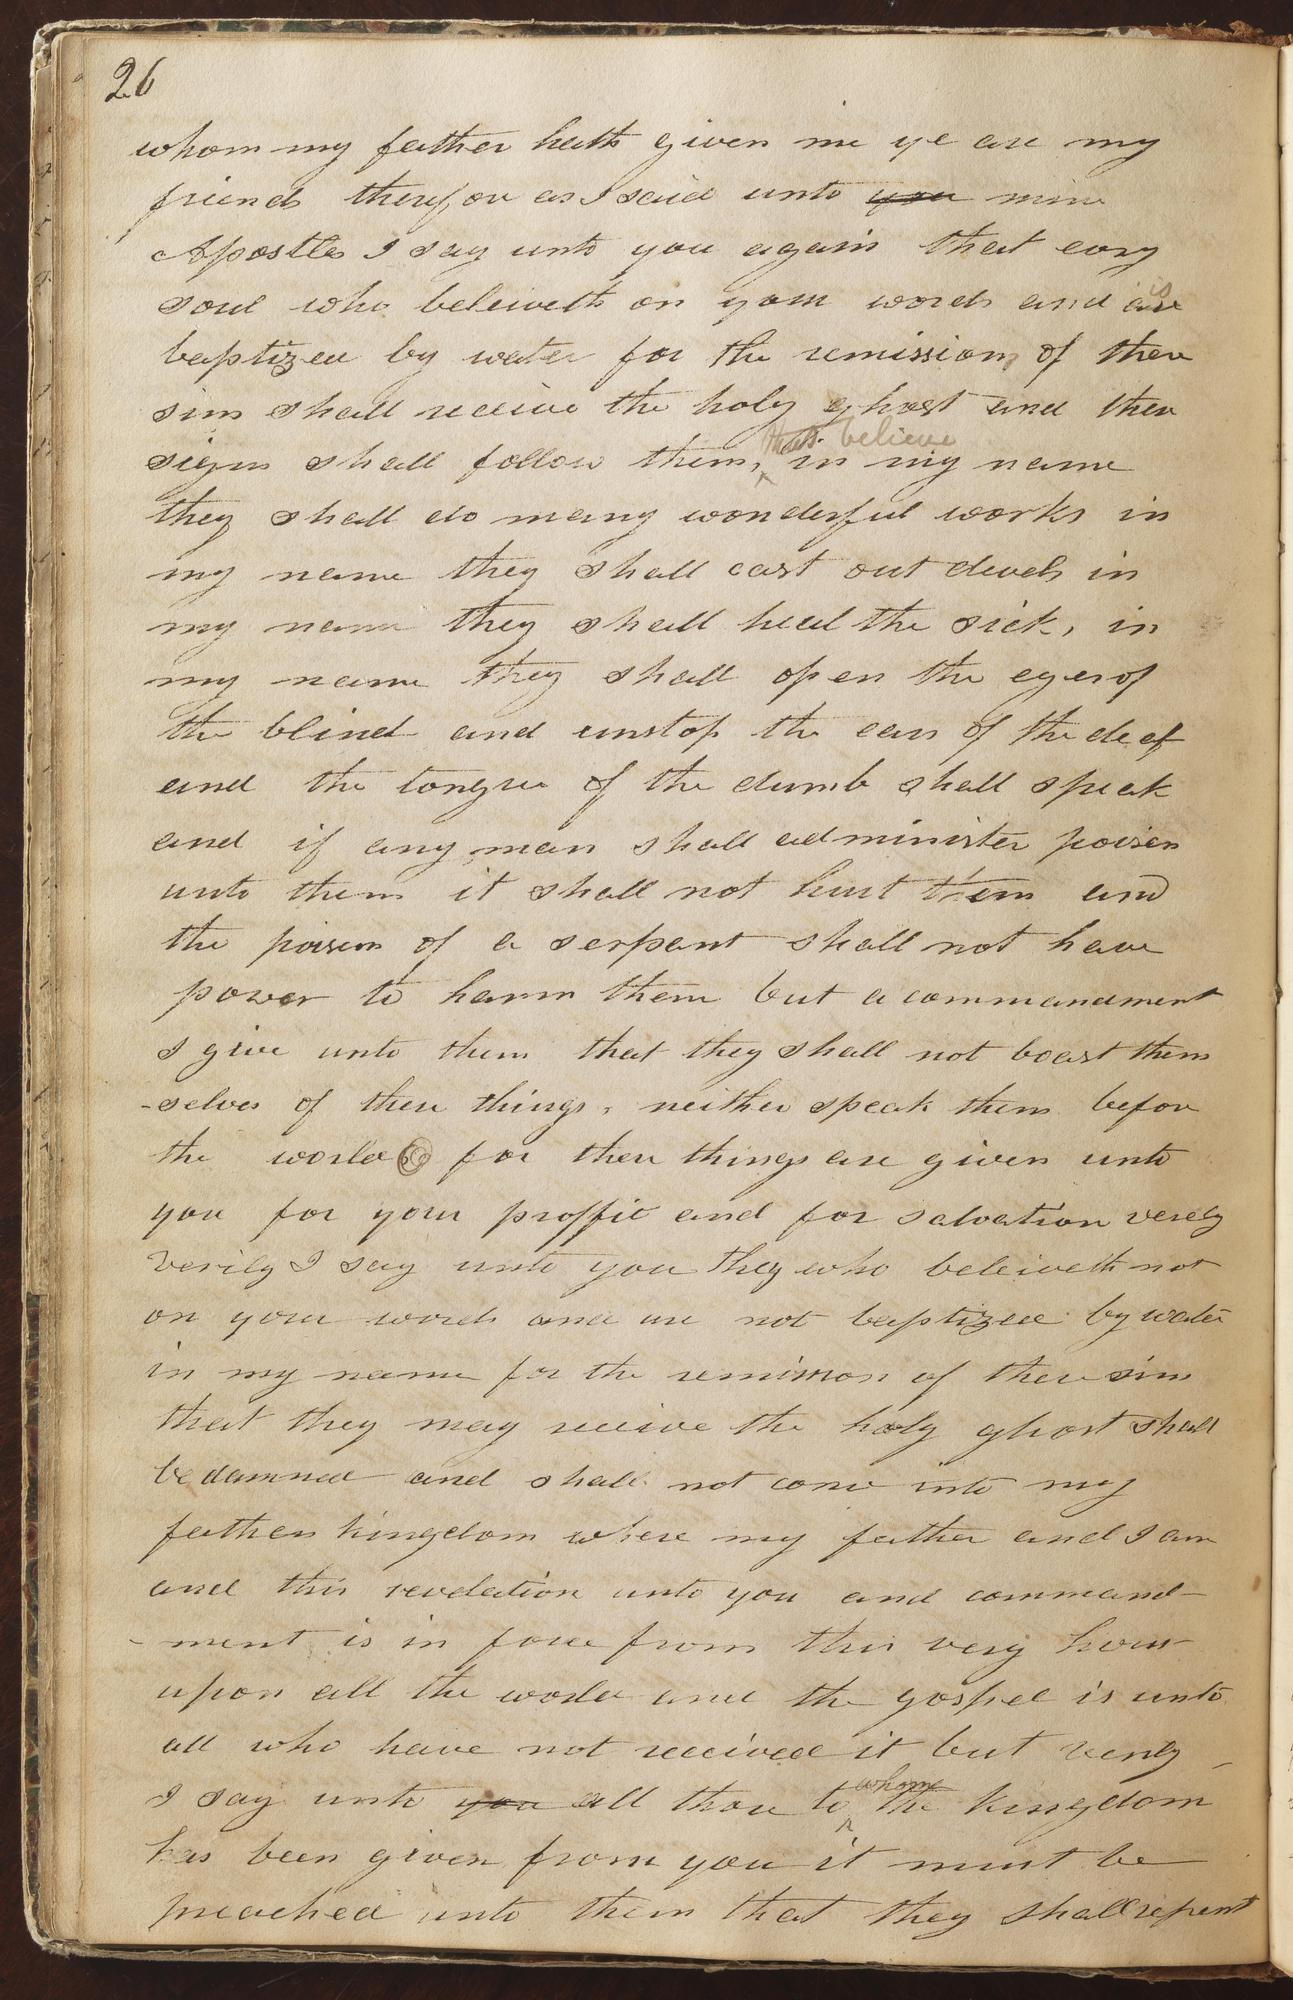 26
whom my father hath given me ye are my
friends therefore as I said unto you mine
Apostles I say unto you again that evry
soul who beleiveth on your words and are is
baptized by water for the remission of there
sins shall receive the holy ghost and these
that believe
signs shall follow them, in my name
they shall do many wonderful works in
my name they shall cast out devels in
my name they shall heal the sick, in
my name they shall open the eyes of
the blind and unstop the ears of the deaf
and the tongue of the dumb shall speak
and if any man shall administer poisen
unto them it shall not hurt them and
the poisen of a serpant shall not have
power to harm them but a commandment
I give unto them that they shall not boast them
-selves of these things, neither speak them before
the world for these things are given unto
you for your proffit and for salvation verely
verily I say unto you they who beleiveth not
on your words and are not baptized by water
in my name for the remission of there sins
that they may receive the holy ghost shall
be damned and shall not come into my
fathers kingdom where my father and I am
and this revelation unto you and command-
-ment is in force from this very hour
upon all the world and the gospel is unto
all who have not received it but verily
whom
I say unto you all those to the kingdom
has been given from you it must be
preached unto them that they shall repent